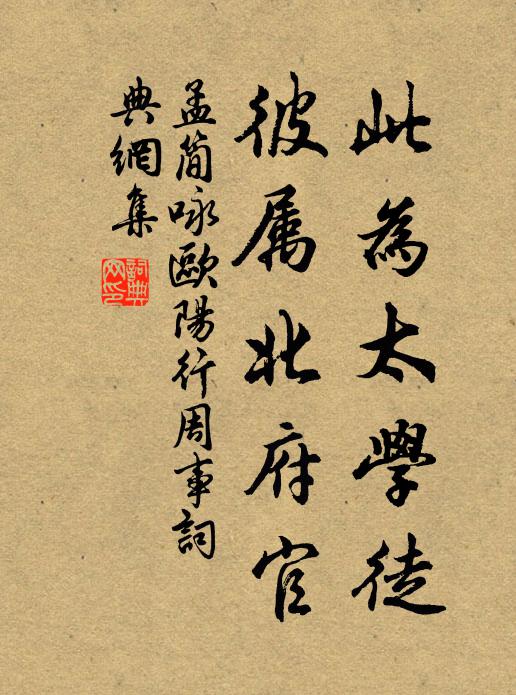 此為太學徒
彼属北府官
孟簡咏歐陽行周事詞
典網集
詞典
网印